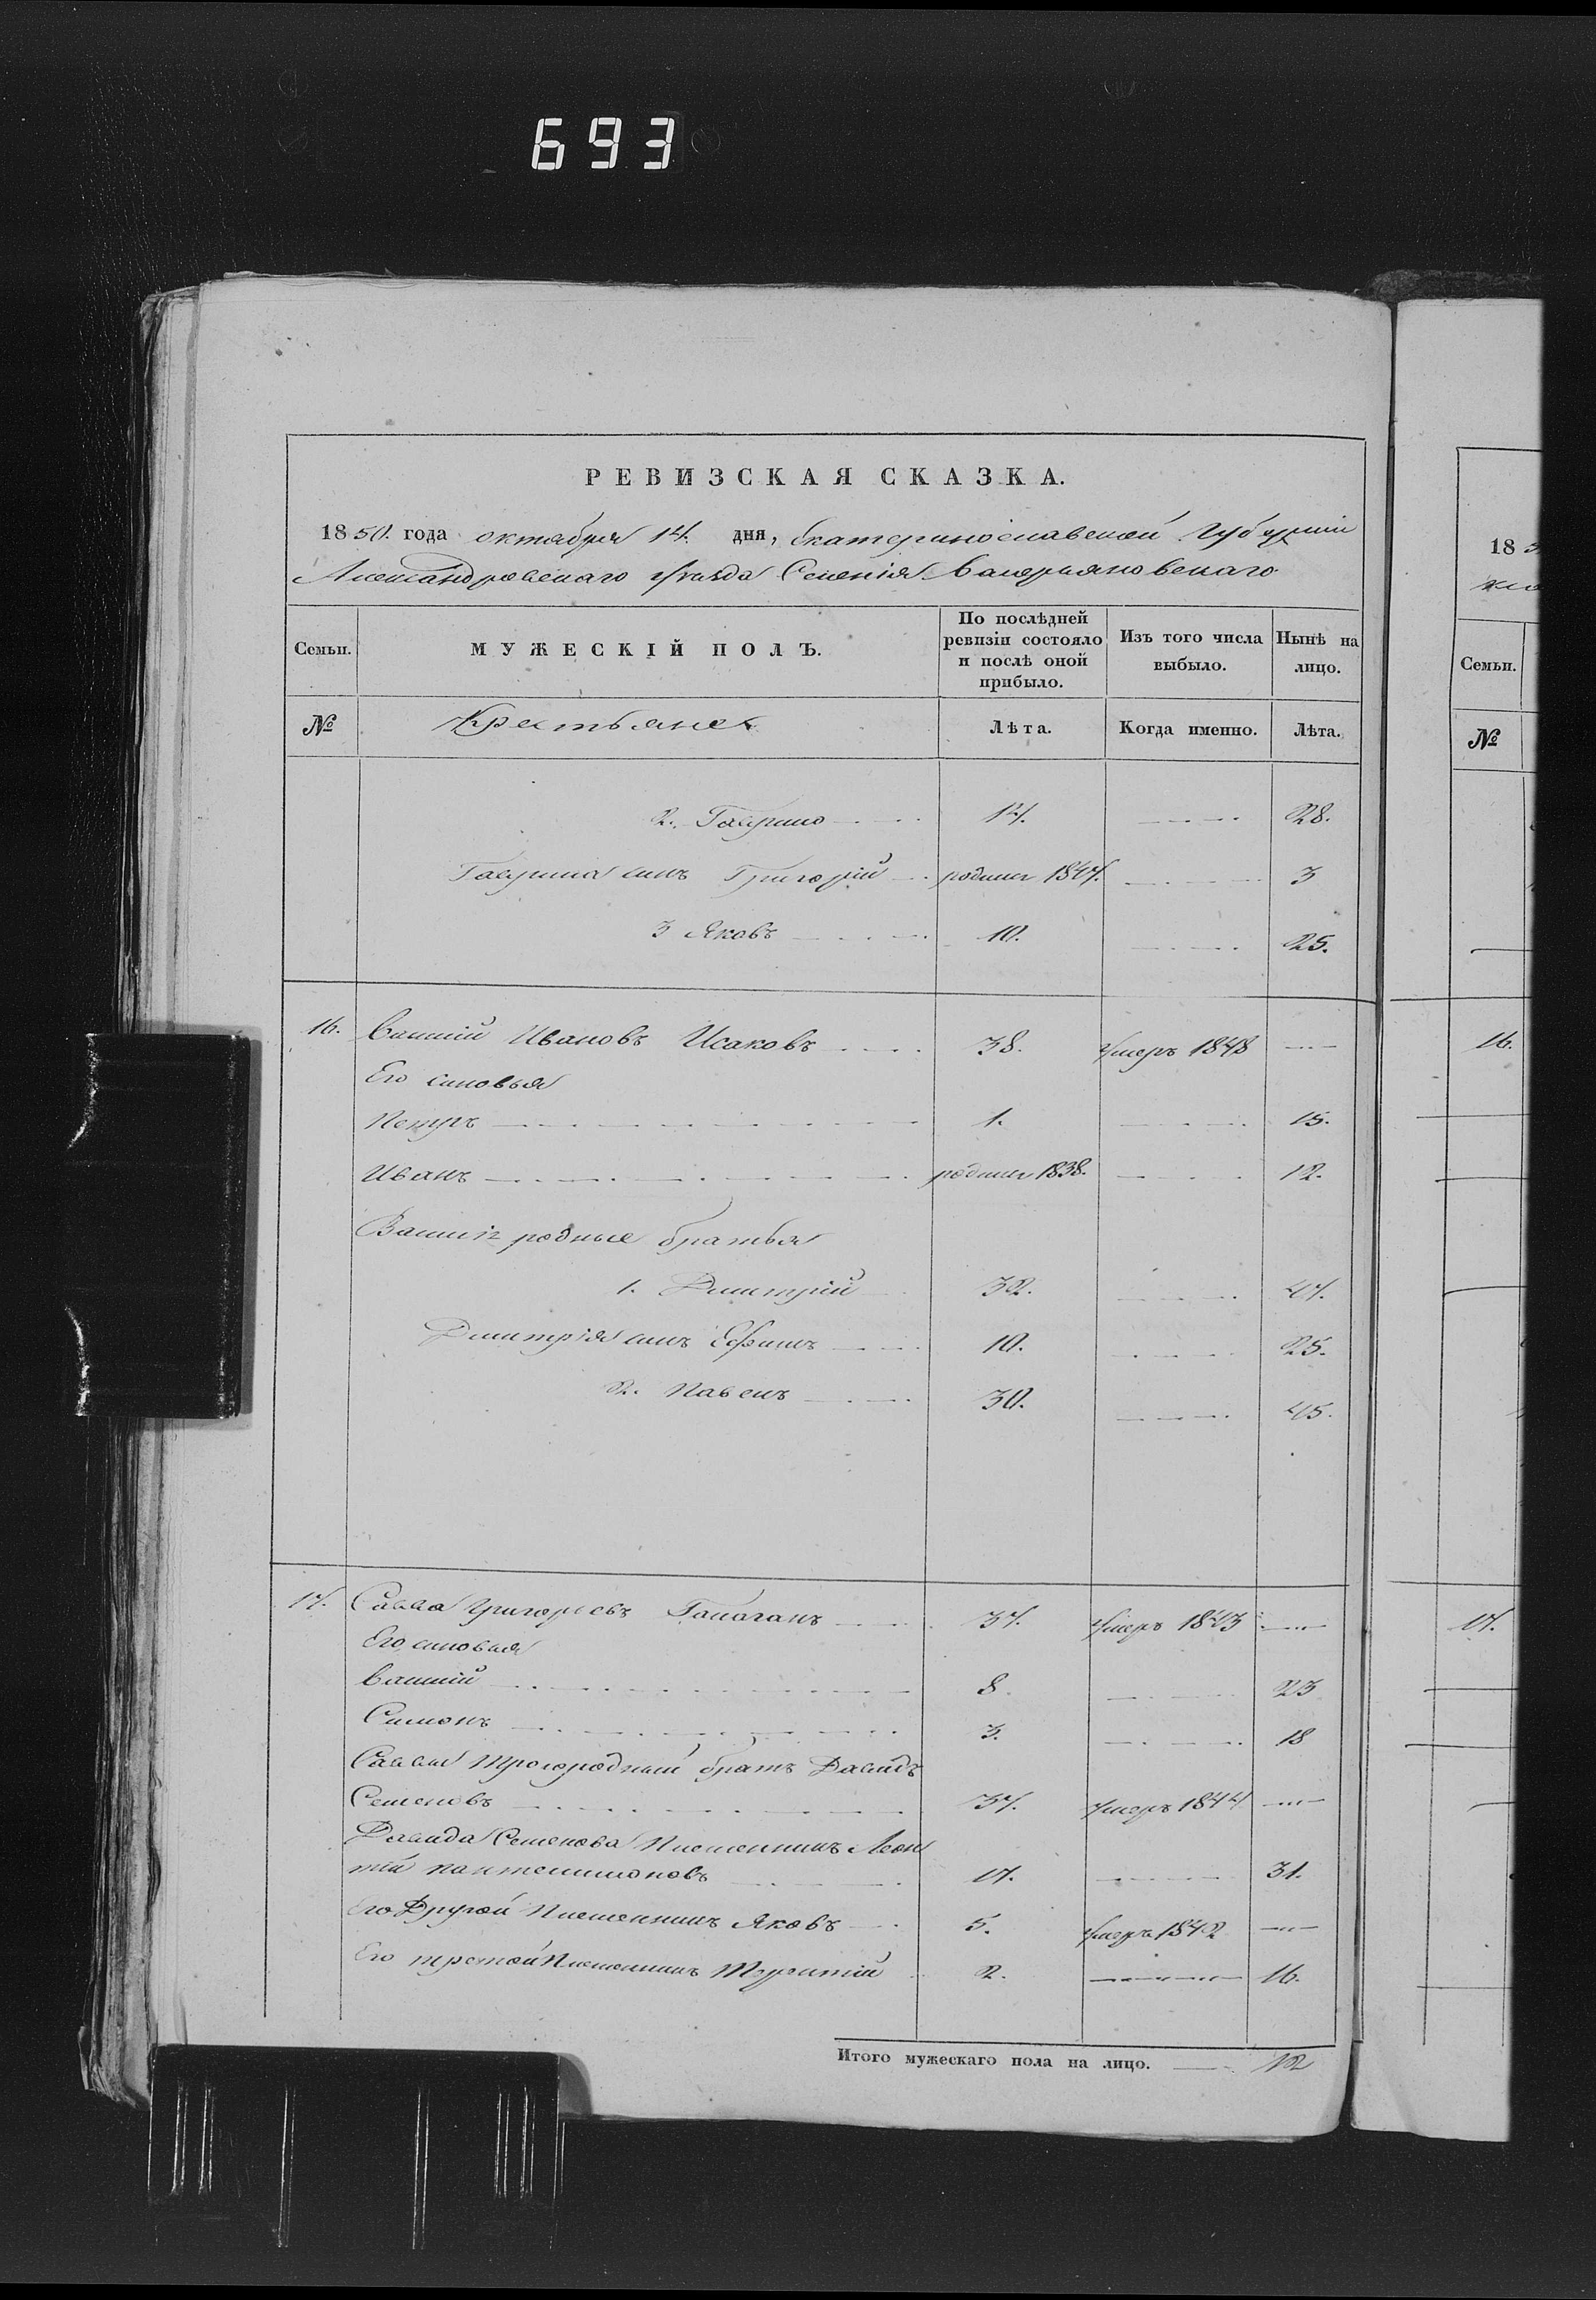 693
РЕВИЗСКАЯ СКАЗКА.
1850. года октября 14. дня, Екатеринославской Губерніи
Александровскаго уѣзда Селенія Валерьяновскаго
Семьи. МУЖЕСКІЙ ПОЛЪ. По послѣдней ревизіи состояло и послѣ оной прибыло. Изъ того числа выбыло. Нынѣ на лицо.
№ Крестьяне Лѣта. Когда именно. Лѣта.
2. Гаврило 14. 28.
Гаврила сынъ Григорій родился 1847. 3
3 Яковъ 10. 25.
16. Василій Ивановъ Исаковъ 38. умеръ 1848
Его сыновья
Петръ 1. 15.
Иванъ родился 1838. 12.
Василія родные братья
1. Дмитрій 32. 47.
Дмитрія сынъ Ефимъ 10. 25.
2. Павелъ 30. 45.
17. Савва Григорьевъ 37. умеръ 1843
Его сыновья
Василій 8. 23
Симонъ 3. 18
Саввы троюродный братъ Давидъ
Семеновъ 37. умеръ 1844
Давида Семенова племянникъ Леон
тій Пантелимоновъ 17. 31.
Его Другой племянникъ Яковъ 5. умеръ 1842
Его третой племянникъ Терентій 2. 16.
Итого мужескаго пола на лицо. 12
18
Семьи.
№
16.
17.